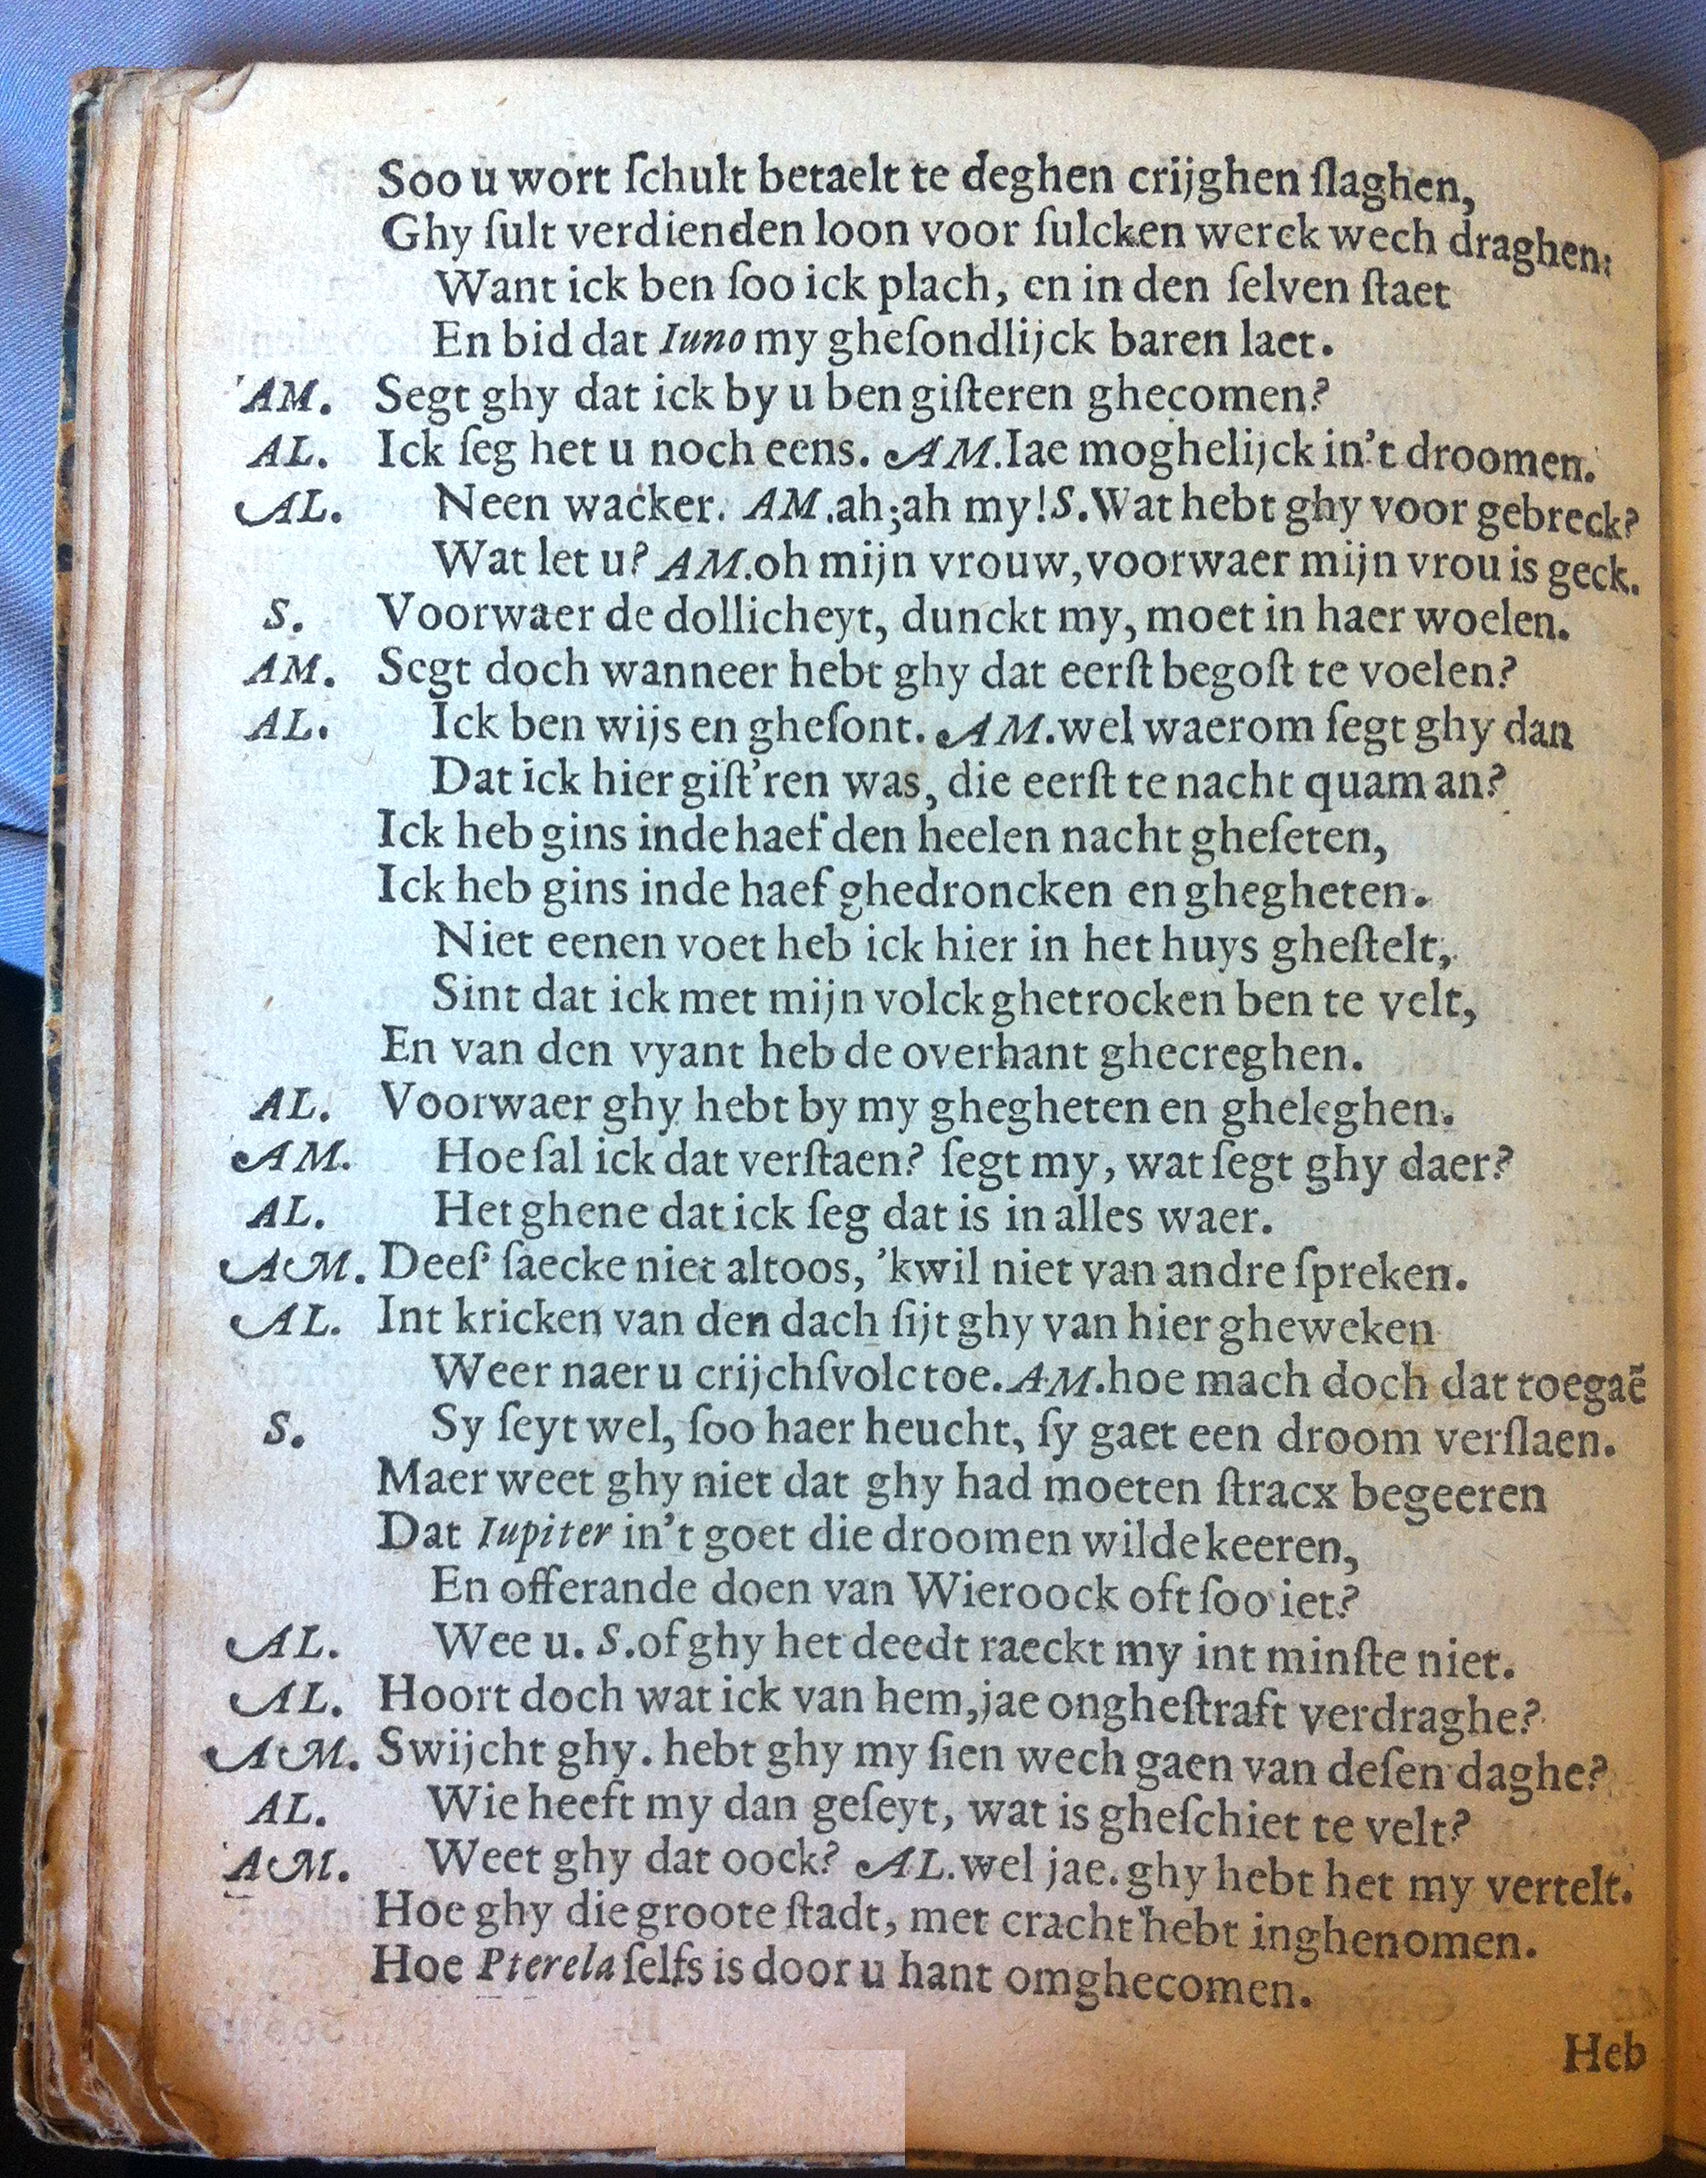 Soo u wort ſchult betaelt te deghen crijghen ſlaghen,
Ghy ſult verdienden loon voor ſulcken werck wech draghen:
Want ick ben ſoo ick plach, en in den ſelven ſtaet
En bid dat Iuno my gheſondlijck baren laet.
AM. Segt ghy dat ick by u ben giſteren ghecomen?
AL. Ick ſeg het u noch eens. AM. Iae moghelijck in't droomen.
AL. Neen wacker. AM. ah; ah my! S. Wat hebt ghy voor gebreck?
Wat let u? AM. oh mijn vrouw, voorwaer mijn vrou is geck.
S. Voorwaer de dollicheyt, dunckt my, moet in haer woelen.
AM. Segt doch wanneer hebt ghy dat eerſt begoſt te voelen?
AL. Ick ben wijs en gheſont. AM. wel waerom ſegt ghy dan
Dat ick hier giſt'ren was, die eerſt te nacht quam an?
Ick heb gins inde haef den heelen nacht gheſeten,
Ick heb gins inde haef ghedroncken en ghegheten.
Niet eenen voet heb ick hier in het huys gheſtelt,
Sint dat ick met mijn volck ghetrocken ben te velt,
En van den vyant heb de overhant ghecreghen.
AL. Voorwaer ghy hebt by my ghegheten en gheleghen.
AM. Hoe ſal ick dat verſtaen? ſegt my, wat ſegt ghy daer?
AL. Het ghene dat ick ſeg dat is in alles waer.
AM. Deeſ' ſaecke niet altoos, 'kwil niet van andre ſpreken.
AL. Int kricken van den dach ſijt ghy van hier gheweken
Weer naer u crijchſvolc toe. AM. hoe mach doch dat toegaẽ
S. Sy ſeyt wel, ſoo haer heucht, ſy gaet een droom verſlaen.
Maer weet ghy niet dat ghy had moeten ſtracx begeeren
Dat Iupiter in't goet die droomen wilde keeren,
En offerande doen van Wieroock oft ſoo iet?
AL. Wee u. S. of ghy het deedt raeckt my int minſte niet.
AL. Hoort doch wat ick van hem, jae ongheſtraft verdraghe?
AM. Swijcht ghy. hebt ghy my ſien wech gaen van deſen daghe?
AL. Wie heeft my dan geſeyt, wat is gheſchiet te velt?
AM. Weet ghy dat oock? AL. wel jae. ghy hebt het my vertelt.
Hoe ghy die groote ſtadt, met cracht hebt inghenomen.
Hoe Pterela ſelfs is door u hant omghecomen.
Heb